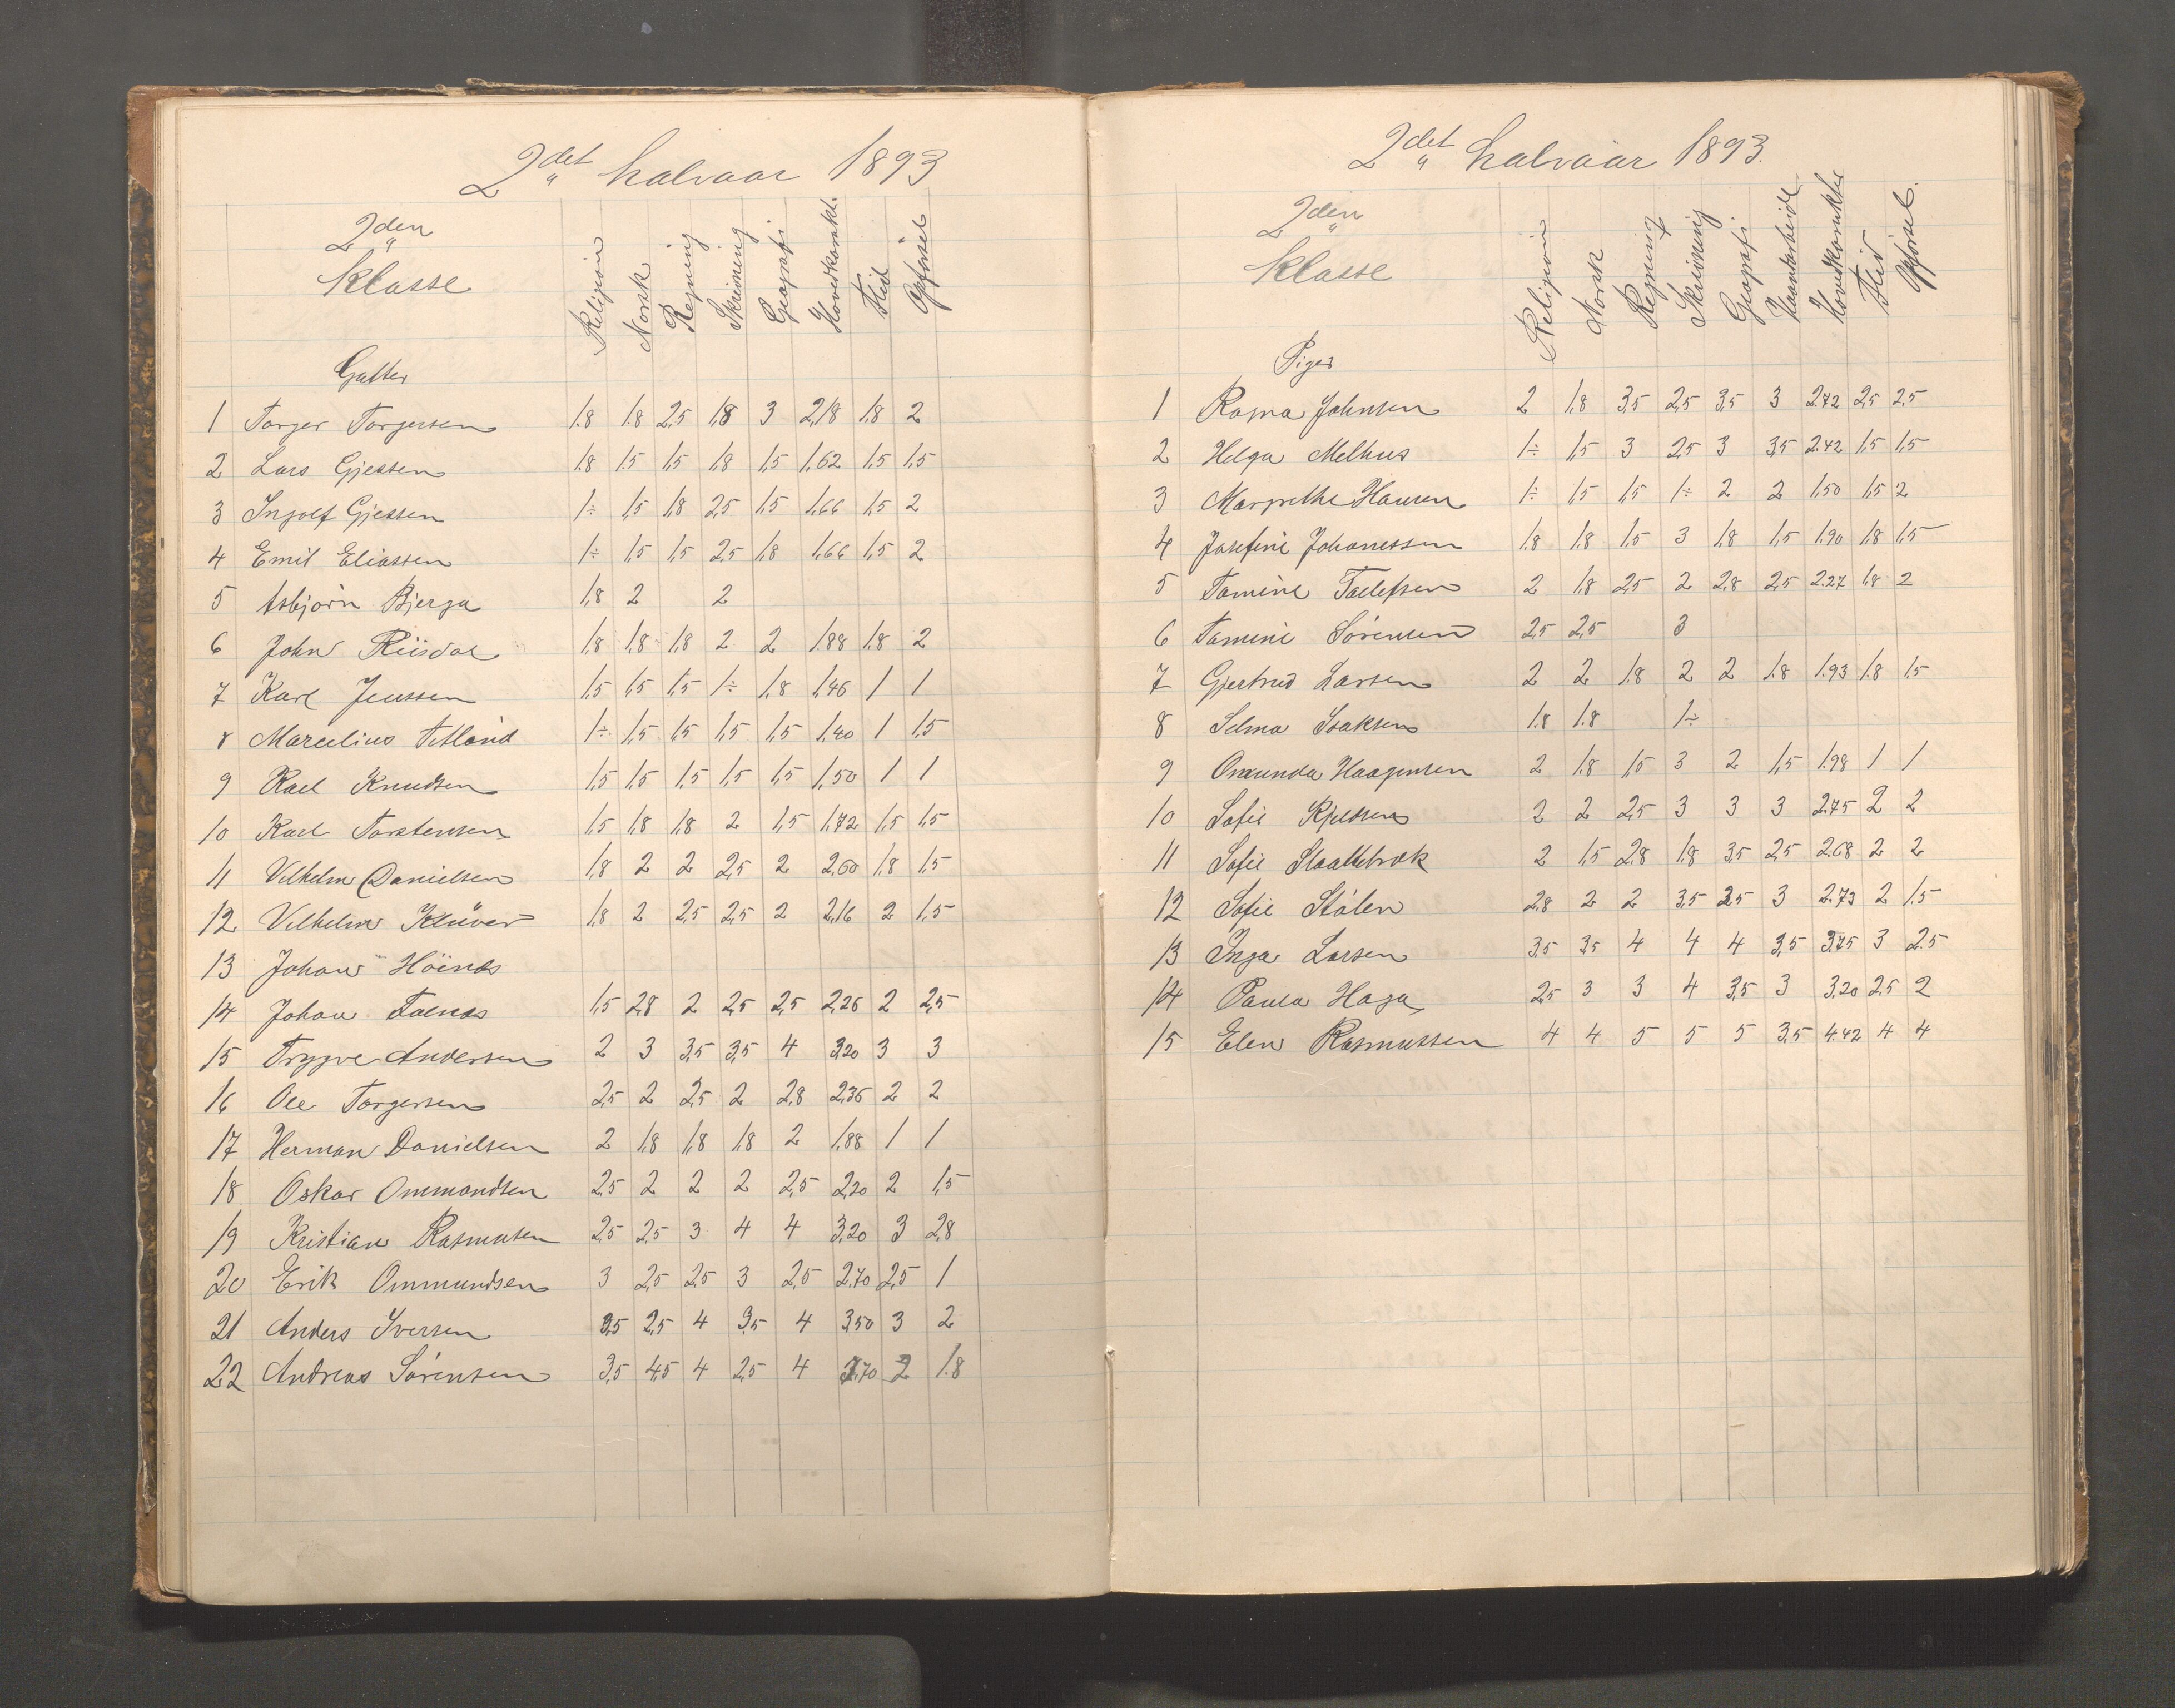 2det halvaar 1893
2den
Klasse
Religion Norsk Regning Skrivning Geografi Hovedkarakt. Flid Opførsel
Gutter
1 Torger Torgersen 1.8 1.8 2,5 1,8 3 2,18 1,8 2
2 Lars Gjessen 1.8 1.5 1,5 1,8 1,5 1,62 1,5 1,5
3 Ingolf Gjessen 1÷ 1,5 1,8 2,5 1,5 1,66 1,5 2
4 Emil Eliassen 1÷ 1,5 1,5 2,5 1,8 1,66 1,5 2
5 Asbjörn Bjerga 1,8 2 2
6 John Riisdal 1,8 1,8 1,8 2 2 1.88 1,8 2
7 Karl Jenssen 1,5 1,5 1,5 1÷ 1,8 1,46 1 1
8 Marcelius Tetland 1÷ 1,5 1,5 1,5 1,5 1,40 1 1,5
9 Karl Knudsen 1,5 1,5 1,5 1,5 1,5 1,50 1 1
10 Karl Torstensen 1,5 1,8 1,8 2 1,5 1,72 1,5 1,5
11 Vilhelm Danielsen 1,8 2 2 2,5 2 2,60 1,8 1,5
12 Vilhelm Klüver 1,8 2 2,5 2,5 2 2,16 2 1,5
13 Johan Höines
14 Johan Folnes 1,5 2,8 2 2,5 2,5 2,26 2 2,5
15 Trygve Andersen 2 3 3,5 3,5 4 3,20 3 3
16 Ole Torgersen 2,5 2 2,5 2 2,8 2,36 2 2
17 Herman Danielsen 2 1,8 1,8 1,8 2 1,88 1 1
18 Oskar Ommondsen 2,5 2 2 2 2,5 2,20 2 1,5
19 Kristian Rasmusen 2,5 2,5 3 4 4 3,20 3 2,8
20 Erik Ommundsen 3 2,5 2,5 3 2,5 2,70 2,5 1
21 Anders Iversen 3,5 2,5 4 3,5 4 3,50 3 2
22 Andreas Sörensen 3,5 4,5 4 2,5 4 3,70 2 1.8
2det halvaar 1893.
2den
Klasse
Religion Norsk Regning Skrivning Geografi Haandarbeide Hovedkarakter Flid Opførsel.
Piger
1 Ragna Johnsen 2 1,8 3,5 2,5 3,5 3 2.72 2,5 2,5
2 Helga Melhus 1÷ 1,5 3 2,5 3 3,5 2.42 1,5 1,5
3 Margrethe Hansen 1÷ 1,5 1,5 1÷ 2 2 1,50 1,5 2
4 Josefine Johanessen 1,8 1,8 1,5 3 1,8 1,5 1.90 1,8 1,5
5 Tomine Tollefsen 2 1,8 2,5 2 2,8 2,5 2.27 1,8 2
6 Tomine Sörensen 2,5 2,5 3
7 Gjertrud Larsen 2 2 1.8 2 2 1.8 1.93 1.8 1,5
8 Selma Isaksen 1.8 1.8 1÷
9 Omunda Haagensen 2 1.8 1,5 3 2 1,5 1.98 1 1
10 Sofie Kjeldsen 2 2 2,5 3 3 3 2.75 2 2
11 Sofie Slaattebræk 2 1,5 2,8 1,8 3,5 2,5 2.68 2 2
12 Sofie Stölen 2,8 2 2 3,5 3,5 3 2.73 2 1.5
13 Inga Larsen 3,5 3,5 4 4 4 3,5 3,75 3 2.5
14 Paula Haga 2,5 3 3 4 3,5 3 3,20 2,5 2
15 Elen Rasmussen 4 4 5 5 5 3,5 4.42 4 4